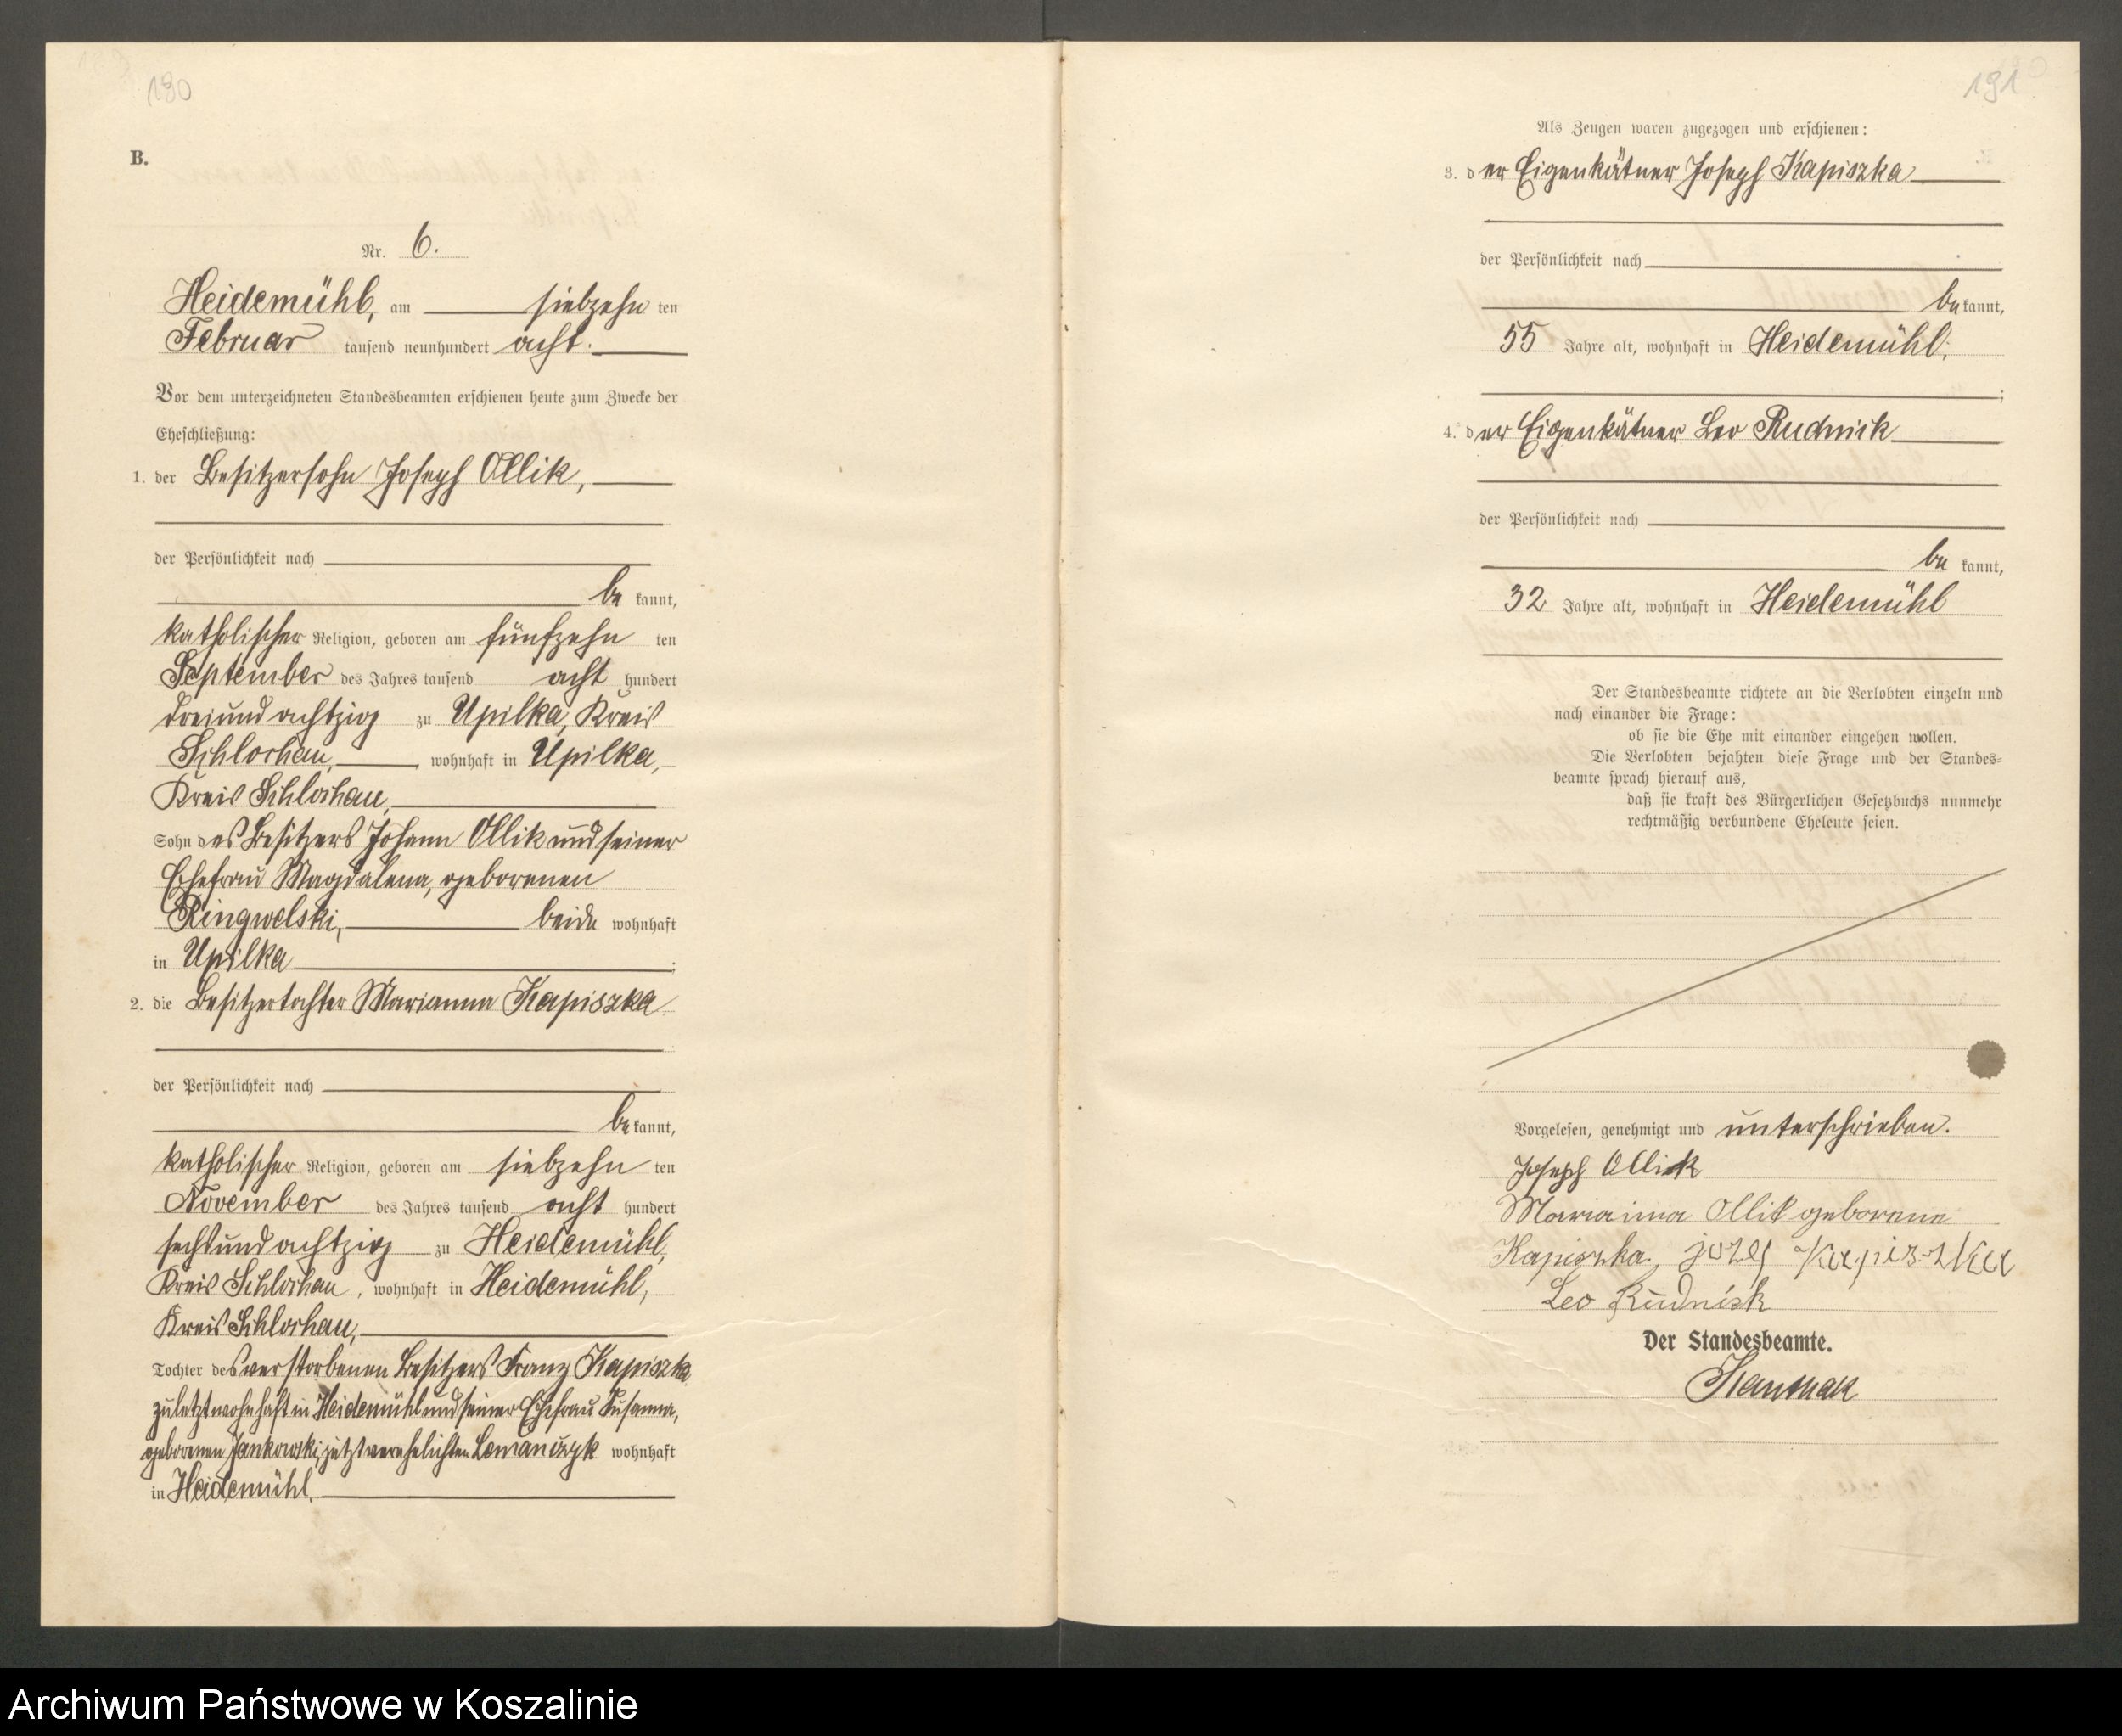 190
B.
Nr. 6.
Heidemühl, am siebzehn ten
Februar tausend neunhundert acht.
Vor dem unterzeichneten Standesbeamten erschienen heute zum Zwecke der
Eheschließung:
1. der Besitzersohn Joseph Ollik,
der Persönlichkeit nach
be kannt,
katholischer Religion, geboren am fünfzehn ten
September des Jahres tausend acht hundert
dreiundachtzig zu Upilka, Kreis
Schlochau, wohnhaft in Upilka,
Kreis Schlochau,
Sohn des Besitzers Johann Ollik und seiner
Ehefrau Magdalena, geborenen
Ringwelski, beide wohnhaft
in Upilka ;
2. die Besitzertochter Marianna Kapiszka
der Persönlichkeit nach
be kannt,
katholischer Religion, geboren am siebzehn ten
November des Jahres tausend acht hundert
sechsundachtzig zu Heidemühl,
Kreis Schlochau, wohnhaft in Heidemühl,
Kreis Schlochau,
Tochter des verstorbenen Besitzers Franz Kapiszka
zuletzt wohnhaft in Heidemühl und seiner Ehefrau Susanna,
geborenen Jankowski, jetzt verehelichten Lemanczyk wohnhaft
in Heidemühl.
191
Als Zeugen waren zugezogen und erschienen:
3. der Eigenkätner Joseph Kapiszka
der Persönlichkeit nach
be kannt,
55 Jahre alt, wohnhaft in Heidemühl;
;
4. der Eigenkätner Leo Rudnick
der Persönlichkeit nach
be kannt,
32 Jahre alt, wohnhaft in Heidemühl
Der Standesbeamte richtete an die Verlobten einzeln und
nach einander die Frage:
ob sie die Ehe mit einander eingehen wollen.
Die Verlobten bejahten diese Frage und der Standes-
beamte sprach hierauf aus,
daß sie kraft des Bürgerlichen Gesetzbuchs nunmehr
rechtmäßig verbundene Eheleute seien.
Vorgelesen, genehmigt und unterschrieben.
Joseph Ollik
Marianna Ollik geborene
Kapiszka. józef Kapiszka
Leo Rudnick
Der Standesbeamte.
Archiwum Państwowe w Koszalinie